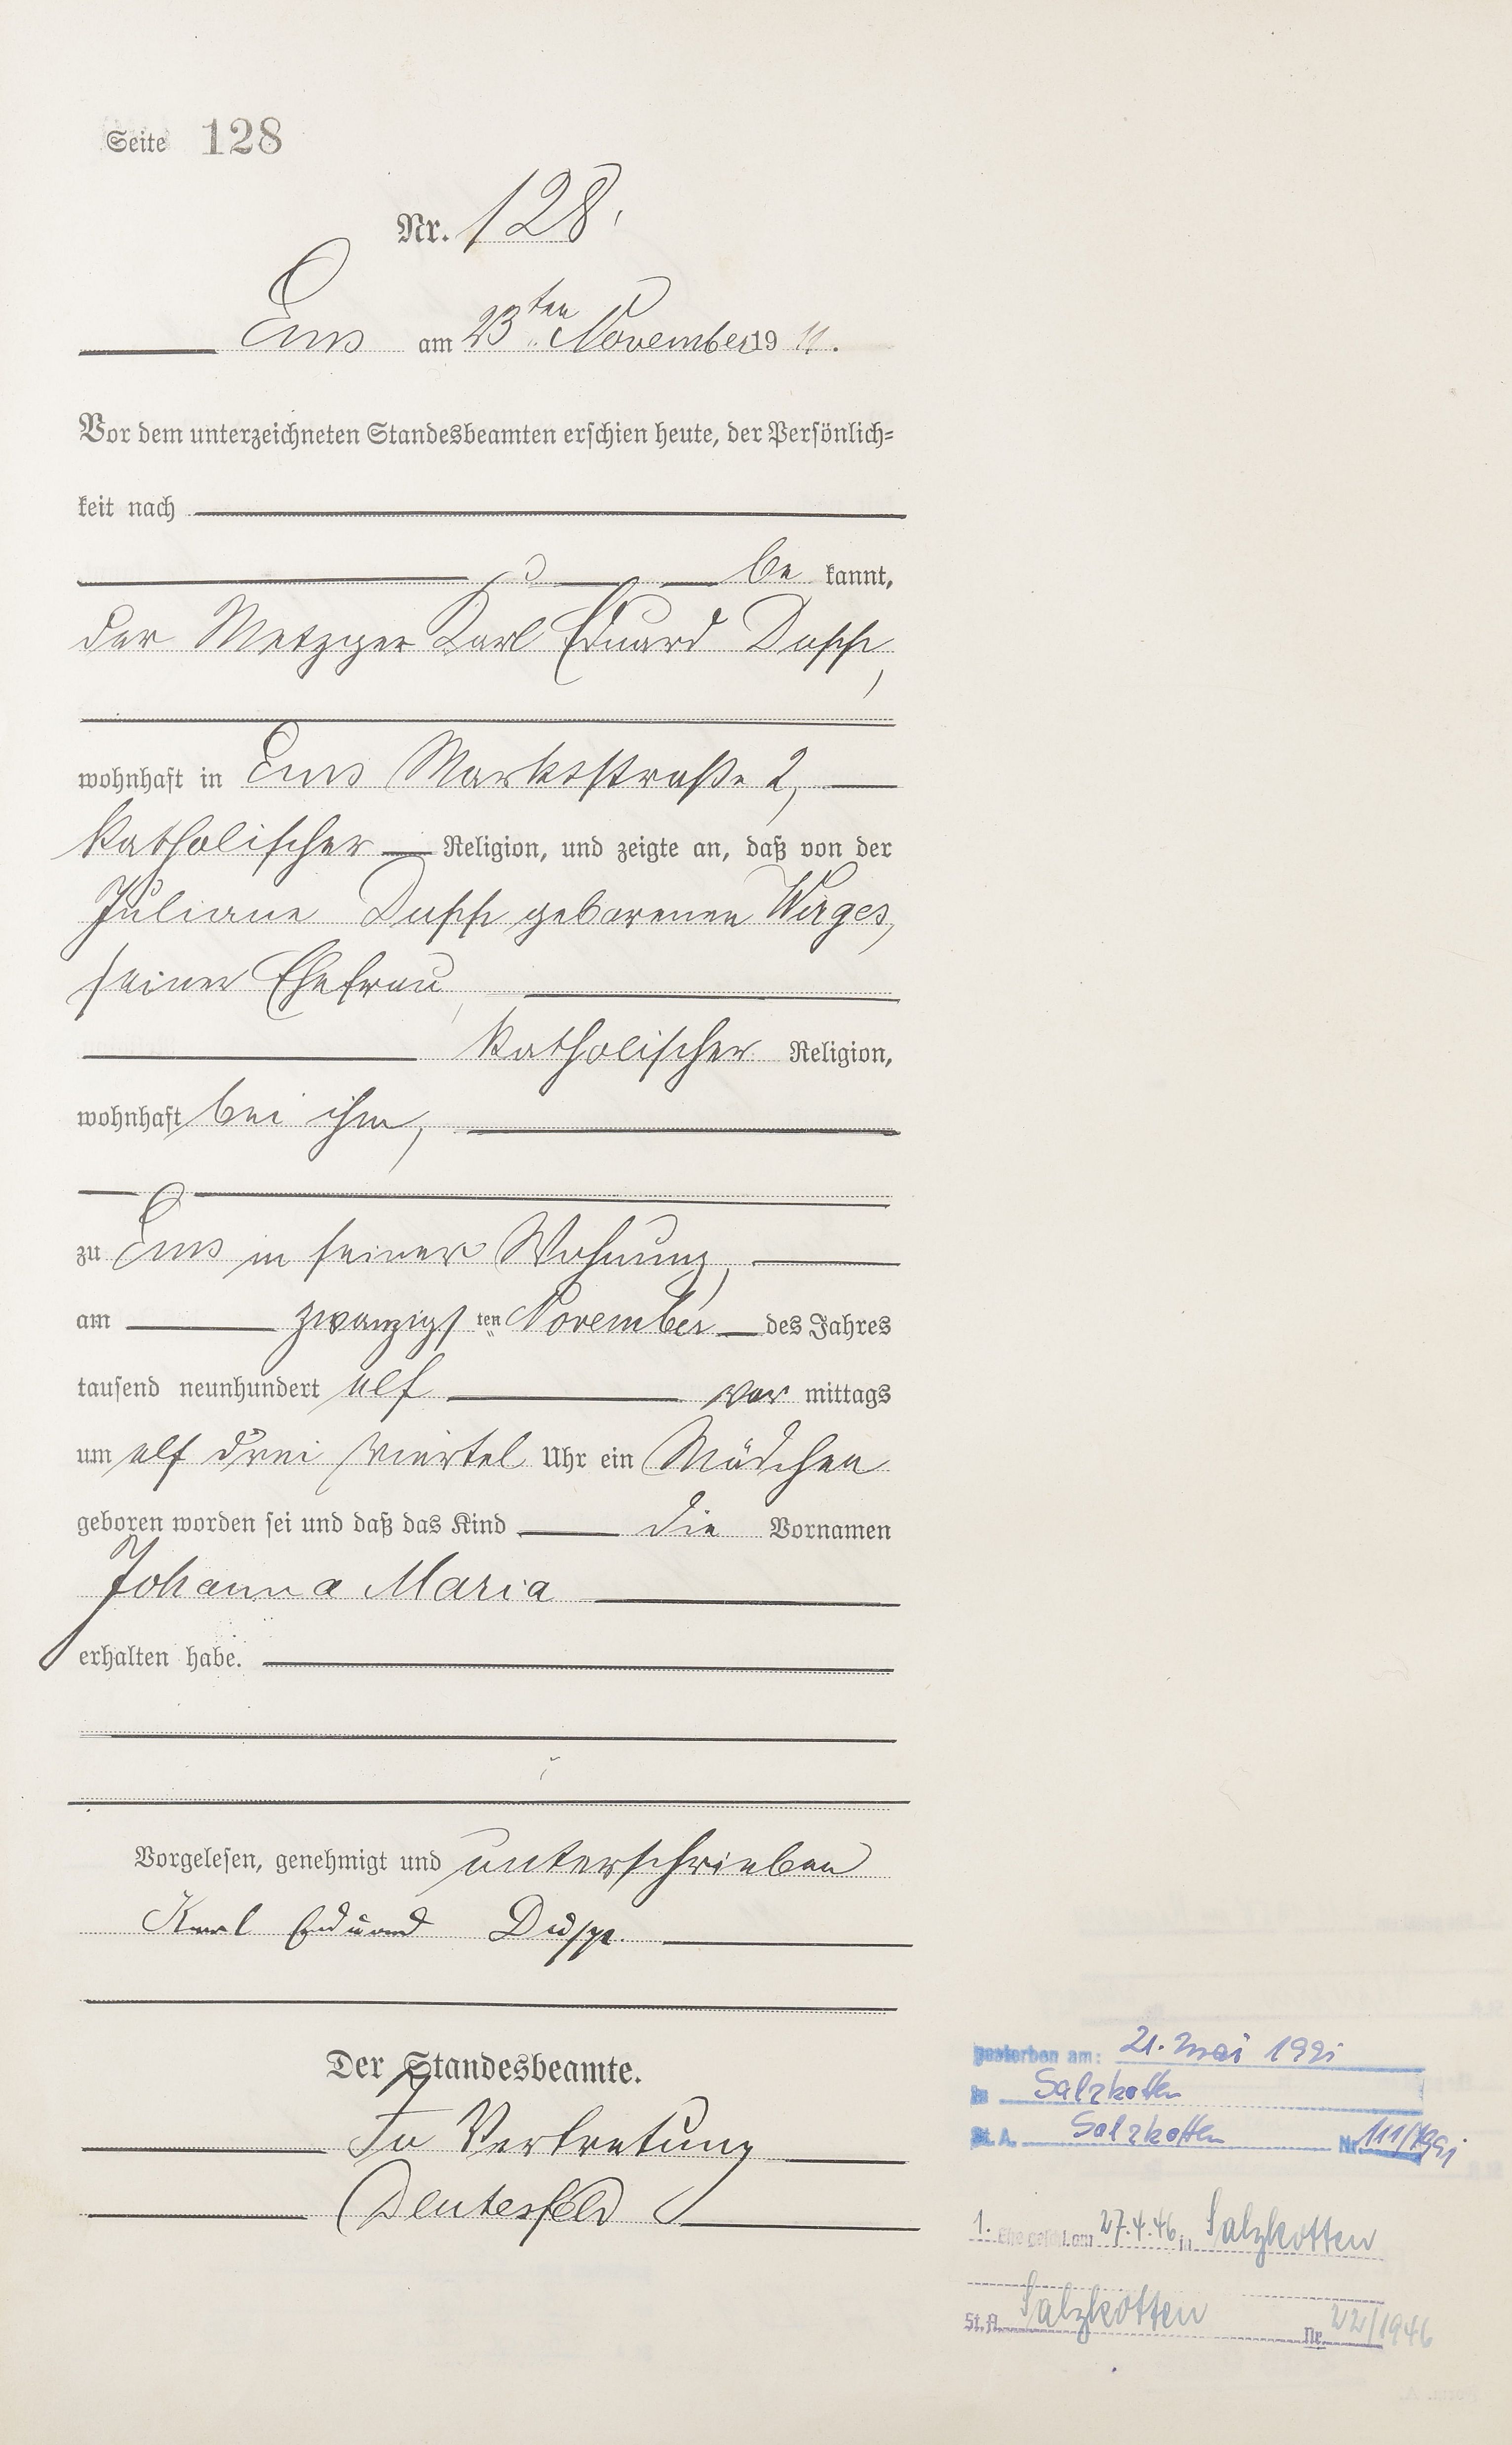 Seite 128
Nr. 128.
Ems am 23ten November 19 11.
Vor dem unterzeichneten Standesbeamten erschien heute, der Persönlich-
keit nach
be kannt,
der Metzger Karl Eduard
wohnhaft in Ems Marktstraße 2,
katholischer Religion, und zeigte an, daß von der
Juliane geborenen Wirges,
seiner Ehefrau,
katholischer Religion,
wohnhaft bei ihm,
zu Ems in seiner Wohnung,
am zwanzigsten November des Jahres
tausend neunhundert elf vor mittags
um elf drei viertel Uhr ein Mädchen
geboren worden sei und daß das Kind die Vornamen
Johanna Maria
erhalten habe.
Vorgelesen, genehmigt und unterschrieben
Karl Eduard
Der Standesbeamte.
In Vertretung
gestorben am: 21. Mai 1991
in Salzkotten
St. A. Salzkotten Nr. 111/1991
1. Ehe geschl. am 27.4.46 in Salzkotten
St. A. Salzkotten Nr. 22/1946